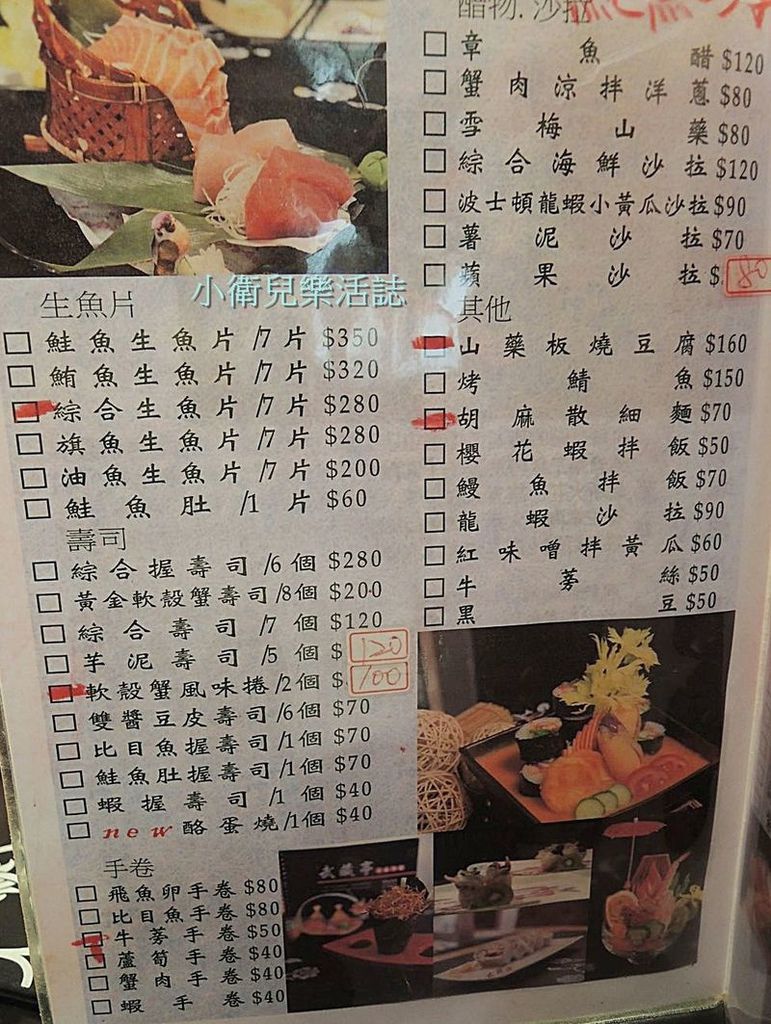 小衛兒樂活誌
生魚片
鮭魚生魚片/7片 $350
鮪魚生魚片/7片 $320
綜合生魚片/7片 $280
旗魚生魚片/7片 $280
油魚生魚片/7片 $200
鮭魚肚/1片 $60
壽司
綜合握壽司/6個 $280
黃金軟殼蟹壽司/8個 $200
綜合壽司/7個 $120
芋泥壽司/5個 $120
軟殼蟹風味捲/2個 $100
雙醬豆皮壽司/6個 $70
比目魚握壽司/1個 $70
鮭魚肚握壽司/1個 $70
蝦握壽司/1個 $40
new 酪蛋燒/1個 $40
手卷
飛魚卵手卷 $80
比目魚手卷 $80
牛蒡手卷 $50
蘆筍手卷 $40
蟹肉手卷 $40
蝦手卷 $40
醋物.沙拉
章魚醋 $120
蟹肉涼拌洋蔥 $80
雪梅山藥 $80
綜合海鮮沙拉 $120
波士頓龍蝦小黃瓜沙拉 $90
薯泥沙拉 $70
蘋果沙拉 $80
其他
山藥板燒豆腐 $160
烤鯖魚 $150
胡麻散細麵 $70
櫻花蝦拌飯 $50
鰻魚拌飯 $70
龍蝦沙拉 $90
紅味噌拌黃瓜 $60
牛蒡絲 $50
黑豆 $50